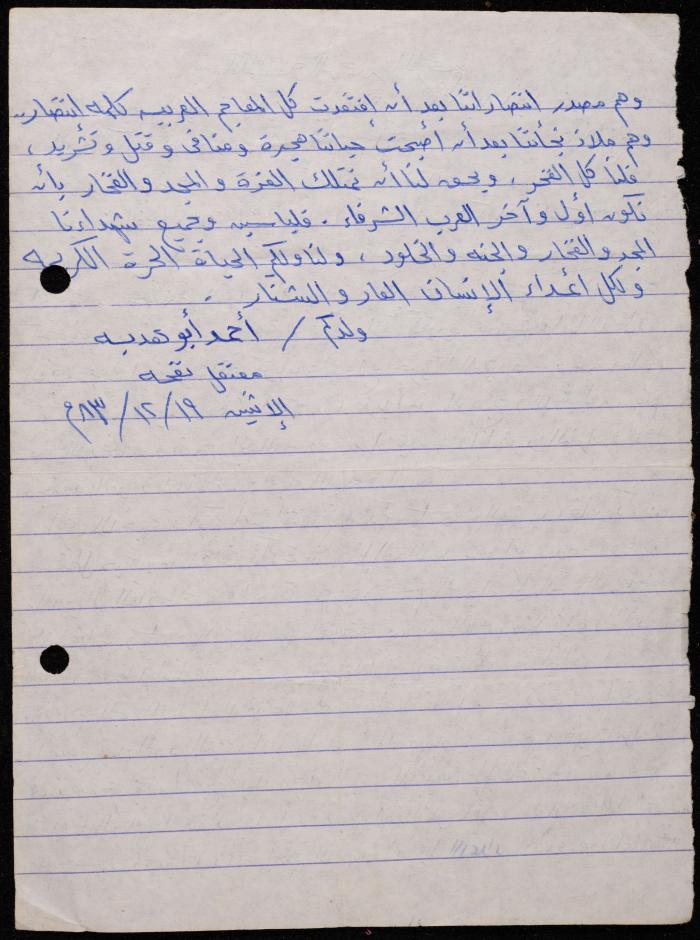 وهم مصدر انتصاراتنا بعد أن إفتقدت كل المعاجم العربيه كلمه انتصار..
وهم ملاذ نجأتنا بعد أن أصبحت حياتنا هجرة ومنافى وقتل وتشريد ،
فلنا كل الفخر ، ويحق لنا أن نمتلك العزة والمجد والفخار بأن
نكون أول وآخر العرب الشرفاء . فلياسين وجميع شهداءنا
المجد والفخار والجنه والخلود ، ولنا ولكم الحياة الحرة الكريمه
ولكل أعداء الإنسان العار والشنار .
ولدكم / أحمد أبو هديبه
معتقل نفحه
الإثنين ١٩ / ١٢ / ٨٣م